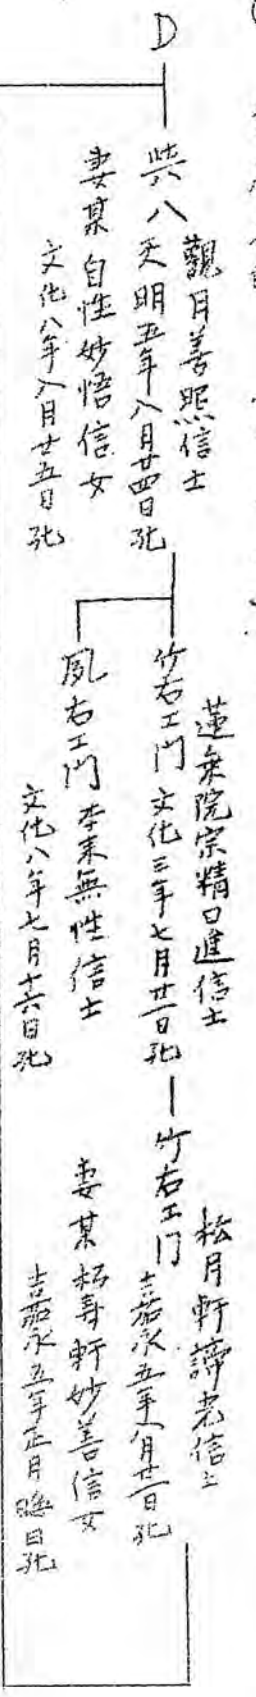 D
觀月善照信士
柴八 天明五年八月廿四日死
妻某 自性妙悟信女
文化八年八月廿五日死
蓮乗院宗精日進信士
竹右エ門 文化三年七月廿一日死
夙右エ門 本来無性信士
文化八年七月十六日死
松月軒諦老信士
竹右エ門 嘉永五年八月廿一日死
妻某 松寿軒妙善信女
嘉永五年正月晦日死